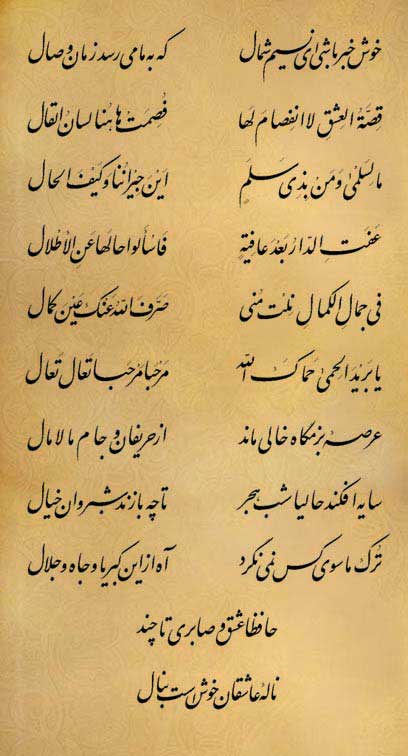 خوش خبر باشی ای نسیم شمال که به ما می رسد زمان وصال
قِصَّةُ العِشقِ لَا انفِصَامَ لَهَا فُصِمَتْ هَا هُنَا لِسَانُ القَال
مَا لِسَلْمَىٰ وَمَنْ بِذِی سَلَمٍ اَیْنَ جِیْرَانُنَا وَ کَیْفَ الحَال
عَفَتِ الدَّارُ بَعْدَ عَافِیَةٍ فَاسْأَلُوا حَالَهَا عَنِ الْأَطْلَال
فِی جَمَالِ الکَمَالِ نِلْتَ مُنیً صَرَّفَ اللهُ عَنْکَ عَیْنَ کَمَال
یَا بَرِیْدَ الحِمیٰ حَمَاکَ اللّٰه مَرْحَبًا مَرْحَبًا تَعَالَ تَعَال
عرصهٔ بزمگاه خالی ماند از حریفان و جام مالامال
سایه افکند حالیا شب هجر تا چه بازند شبروان خیال
تُرک ما سوی کس نمی نگرد آه از این کبریا و جاه و جلال
حافظا عشق و صابری تا چند
نالهٔ عاشقان خوش است بنال